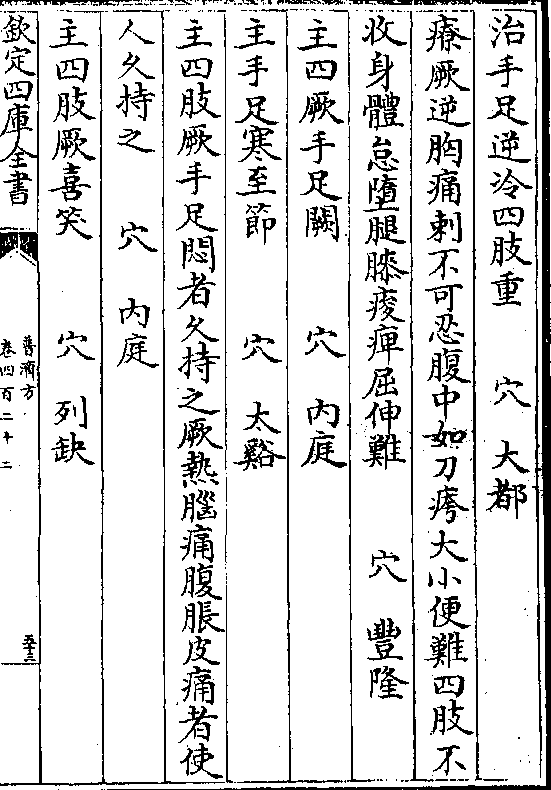 治手足逆冷四肢重　穴　大都
療厥逆胸痛刺不可忍腹中如刀㽲大小便難四肢不
收身體怠墮腿膝痠痺屈伸難　穴　豐隆
主四厥手足闕　穴　内庭
主手足寒至節　穴　太谿
主四肢厥手足悶者久持之厥熱腦痛腹脹皮痛者使
人久持之　穴　内庭
主四肢厥喜笑　穴　列缺
欽定四庫全書
普濟方
卷四百二十二
五十三